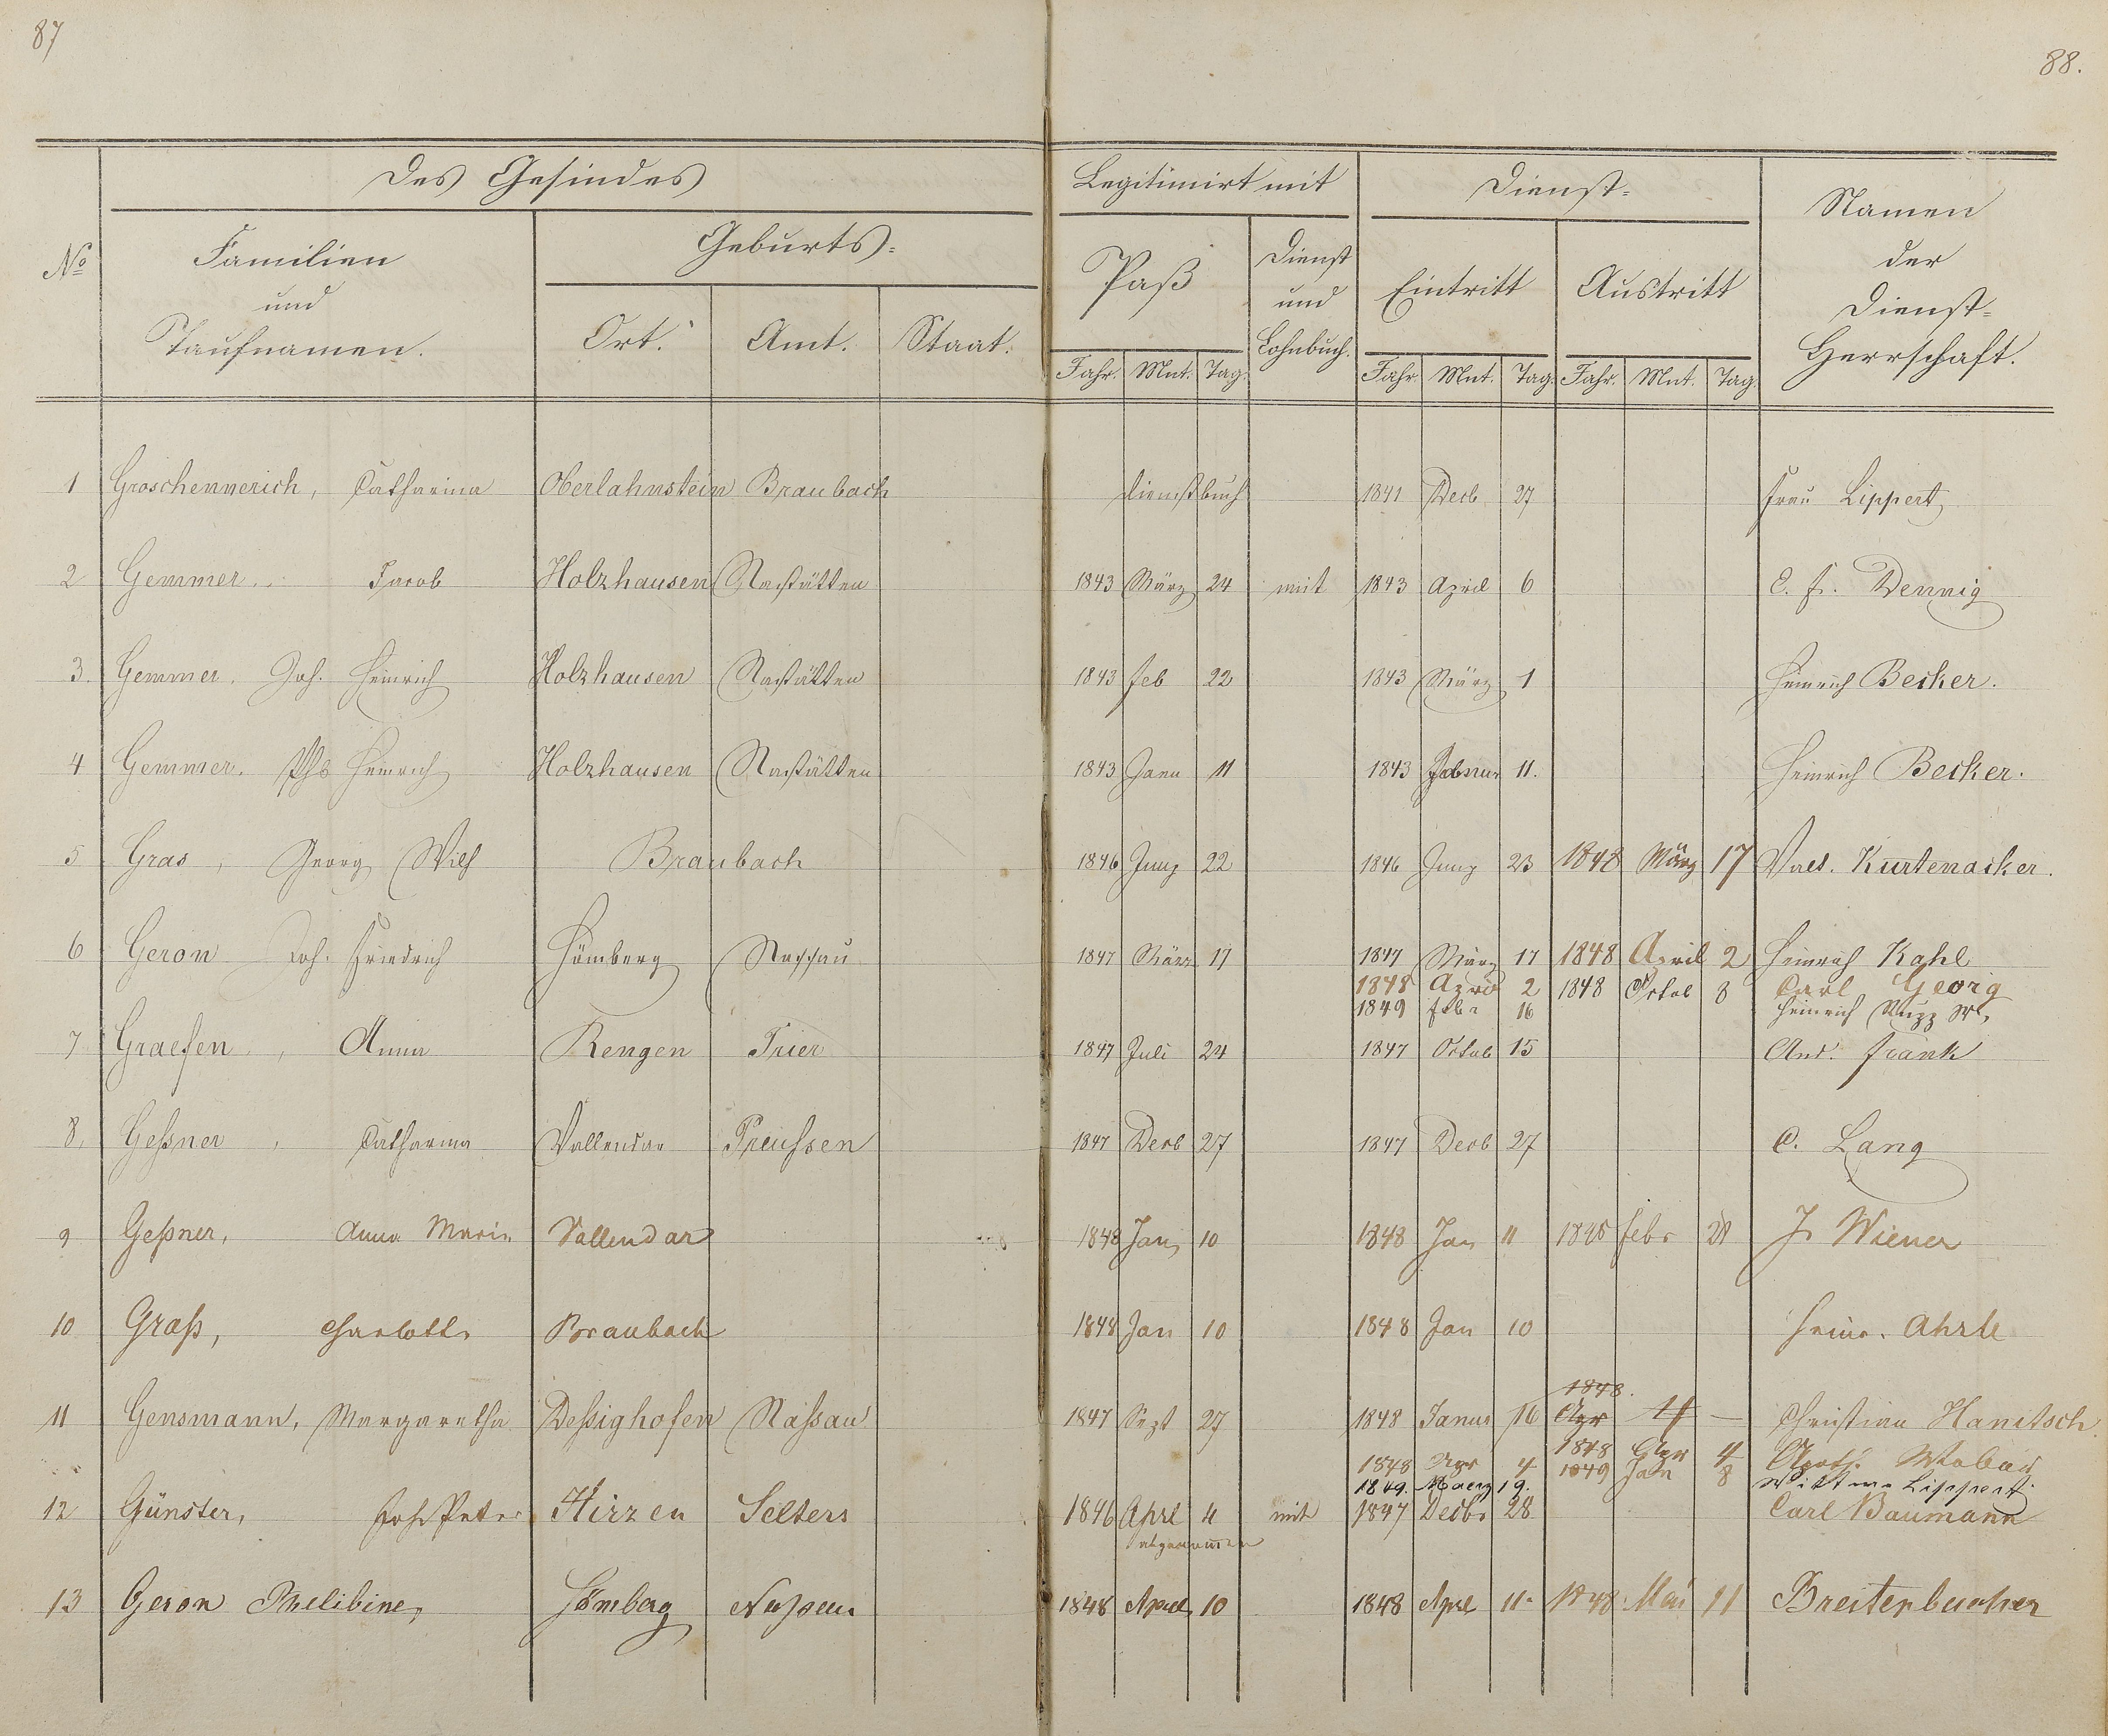 87
88.
Des Gesindes
Legitimirt mit
Dienst=
Namen der Dienst= Herrschaft.
No
Familien und Taufnamen.
Geburts=
Paß
Dienst und Lohnbuch.
Eintritt
Austritt
Ort. Amt. Staat.
Jahr. Mnt. Tag. Jahr. Mnt. Tag. Jahr. Mnt. Tag.
1 Groschennerich, Catharina Oberlahnstein Braubach Dienstbuch 1841 Decb 27 Frau Lippert
2 Gemmer. Jacob Holzhausen Nastätten 1843 März 24 mit 1843 April 6 C. F. Dennig
3. Gemmer. Joh. Heinrich Holzhausen Nastätten 1843 Feb 22 1843 März 1 Heinrich Becker.
4 Gemmer. Phs Heinrich Holzhausen Nastätten 1843 Janu 11 1843 11. Heinrich Becker.
5 Gras, Georg Wilh Braubach 1846 Juny 22 1846 Juny 23 1848 März 17 Kurtenacker.
6 Geron Joh. Friedrich Hömberg Nassau 1847 März 17 1847 März 17 1848 April 2 Heinrich Kahl
1848 April 2 1848 Octob 8 Carl Georg
1849 Febr 16 Heinrich Rupp
7 Graefen, Anna Rengen Trier 1847 Juli 24 1847 Octob 15 And. Frank
8. Geßner, Catharina Vallendar Preußen 1847 Decb 27 1847 Decb 27 C. Lang
9 Geßner, Anna Maria Vallendar 1848 Jan 10 1848 Jan 11 1848 Febr 21 J. Wiener
10 Graß, Charlotte Braubach 1848 Jan 10 1848 Jan 10 Heinr. Ahrle
1848.
11 Gensmann, Margaretha Deßighofen Naßau 1847 Sept 27 1848 Januar 16 Apr 4 — Christian Hanitsch.
1848 Apr 4 1848 Apr 4 Apoth. Weber
1849. Maerz 19. 1849 Jan 8 Wittwe Lippert.
12 Günster, Joh Peter Hirzen Selters 1846 Aprl 4 mit 1847 Decbr 28 Carl Baumann
abgenommen
13 Geron Phelibine, Hömberg Naßau 1848 April 10 1848 Aprl 11. 1848 Mai 11 Breitenbucher